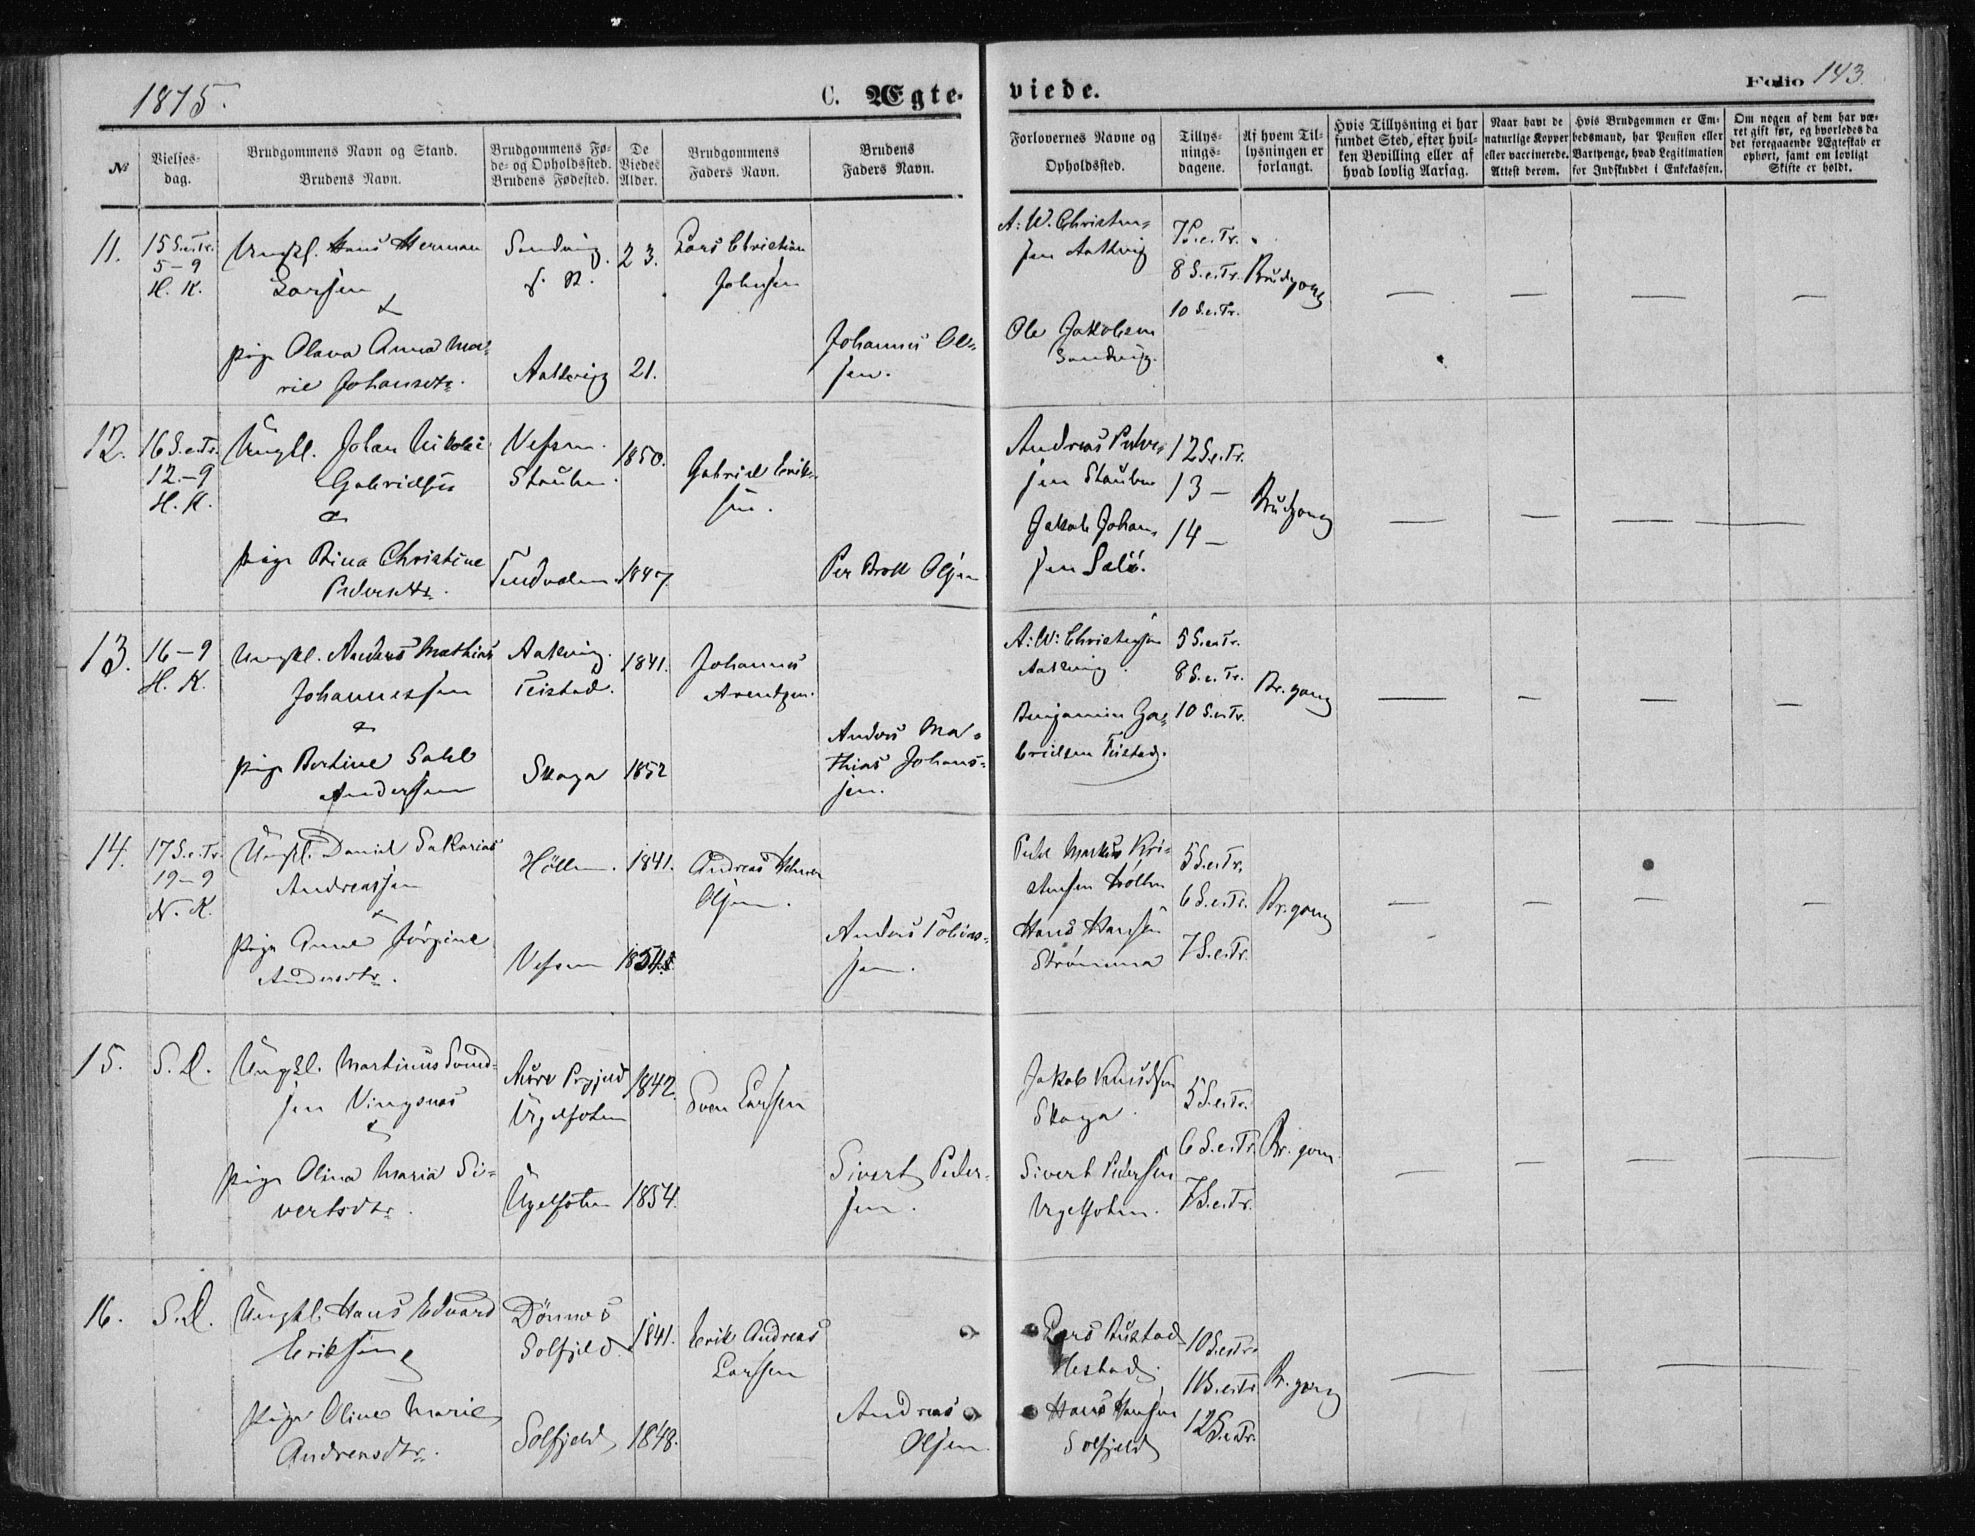 1875.
C. Ægte-
viede.
Folio 143.
№
Vielses-
dag.
Brudgommens Navn og Stand.
Brudens Navn.
Brudgommens Fø-
de- og Opholdssted.
Brudens Fødested.
De
Viedes
Alder.
Brudgommens
Faders Navn.
Brudens
Faders Navn.
Forlovernes Navne og
Opholdssted.
Tillys-
nings-
dagene.
Af hvem Til-
lysningen er
forlangt.
Hvis Tillysning ei har
fundet Sted, efter hvil-
ken Bevilling eller af
hvad lovlig Aarsag.
Naar havt de
naturlige Kopper
eller vaccinerede.
Attest derom.
Hvis Brudgommen er Em-
bedsmand, har Pension eller
Vartpenge, hvad Legitimation
for Indskuddet i Enkekassen.
Om nogen af dem har væ-
ret gift før, og hvorledes da
det foregaaende Ægteskab er
ophørt, samt om lovligt
Skifte er holdt.
11.
15 S.e.Tr.
5-9
H. K.
Ungkl. Hans Herman
Larsen
&
pige Olava Anna Ma-
rie Johansdtr.
Sandvig
Aakvig
23.
21.
Lars Christian
Johnsen
Johannes Ol-
sen.
A: W. Christen-
sen Aakvig
Ole Jakobsen
Sandvig.
7 S.e.Tr.
8 S.e.Tr.
10 S.e.Tr.
Brudgom
12.
16 S.e.Tr.
12-9
H. K.
Ungkl. Johan Nikolai
Gabrielsen
&
pige Rina Christine
Pedersdtr.
Vefsen.
Stauln.
1850.
1847.
Gabriel Erik-
sen.
Per Brok Olsen
Andreas Peder-
sen
Jakob Johan-
sen
12 S.e.Tr.
13 —
14 —
Brudgom
13.
16-9
H. K.
Ungkl. Anders Mathias
Johannessen
&
pige Bertine
Andersen
Aakvig.
Teistad.
Skaga
1841.
1852
Johannes
Arentzen.
Anders Ma-
thias Johans-
sen.
A: W: Christensen
Aakvig.
Benjamin Ga-
brielsen Teistad.
5 S.e.Tr.
8 S.e.Tr.
10 S.e.Tr.
Br.gom
14.
17 S.e.Tr.
19-9
N. K.
Ungkl. Daniel Sakarias
Andreassen
&
pige Anne Jørgine
Andersdtr.
Høllen.
Vefsen
1841.
1854
Andreas
Olsen.
Anders Tobias-
sen.
Markus Kri-
stensen Høllen
Hans Hansen
Strømma
5 S.e.Tr.
6 S.e.Tr.
7 S.e.Tr.
Br.gom
15.
S. D.
Ungkl. Martinus Svend-
sen Vingsnæs
&
pige Olina Maria Si-
vertsdtr.
Aure Prgjeld
Ugelfoten
Ugelfoten
1842.
1854.
Sven Larsen
Sivert Peder-
sen.
Jakob Knudsen
Skaga.
Sivert Pedersen
Ugelfoten.
5 S.e.Tr.
6 S.e.Tr.
7 S.e.Tr.
Br. gom
16.
S. D.
Ungkl. Hans Edvard
Eriksen
pige Oline Marie
Andreasdtr.
Dønnes
Solfjeld
Solfjeld
1841.
1848.
Erik Andreas
Larsen
Andreas
Olsen.
Lars
Hestad
Hans Hansen
Solfjeld
10 S.e.Tr.
11 S.e.Tr.
12 S.e.Tr.
Br. gom